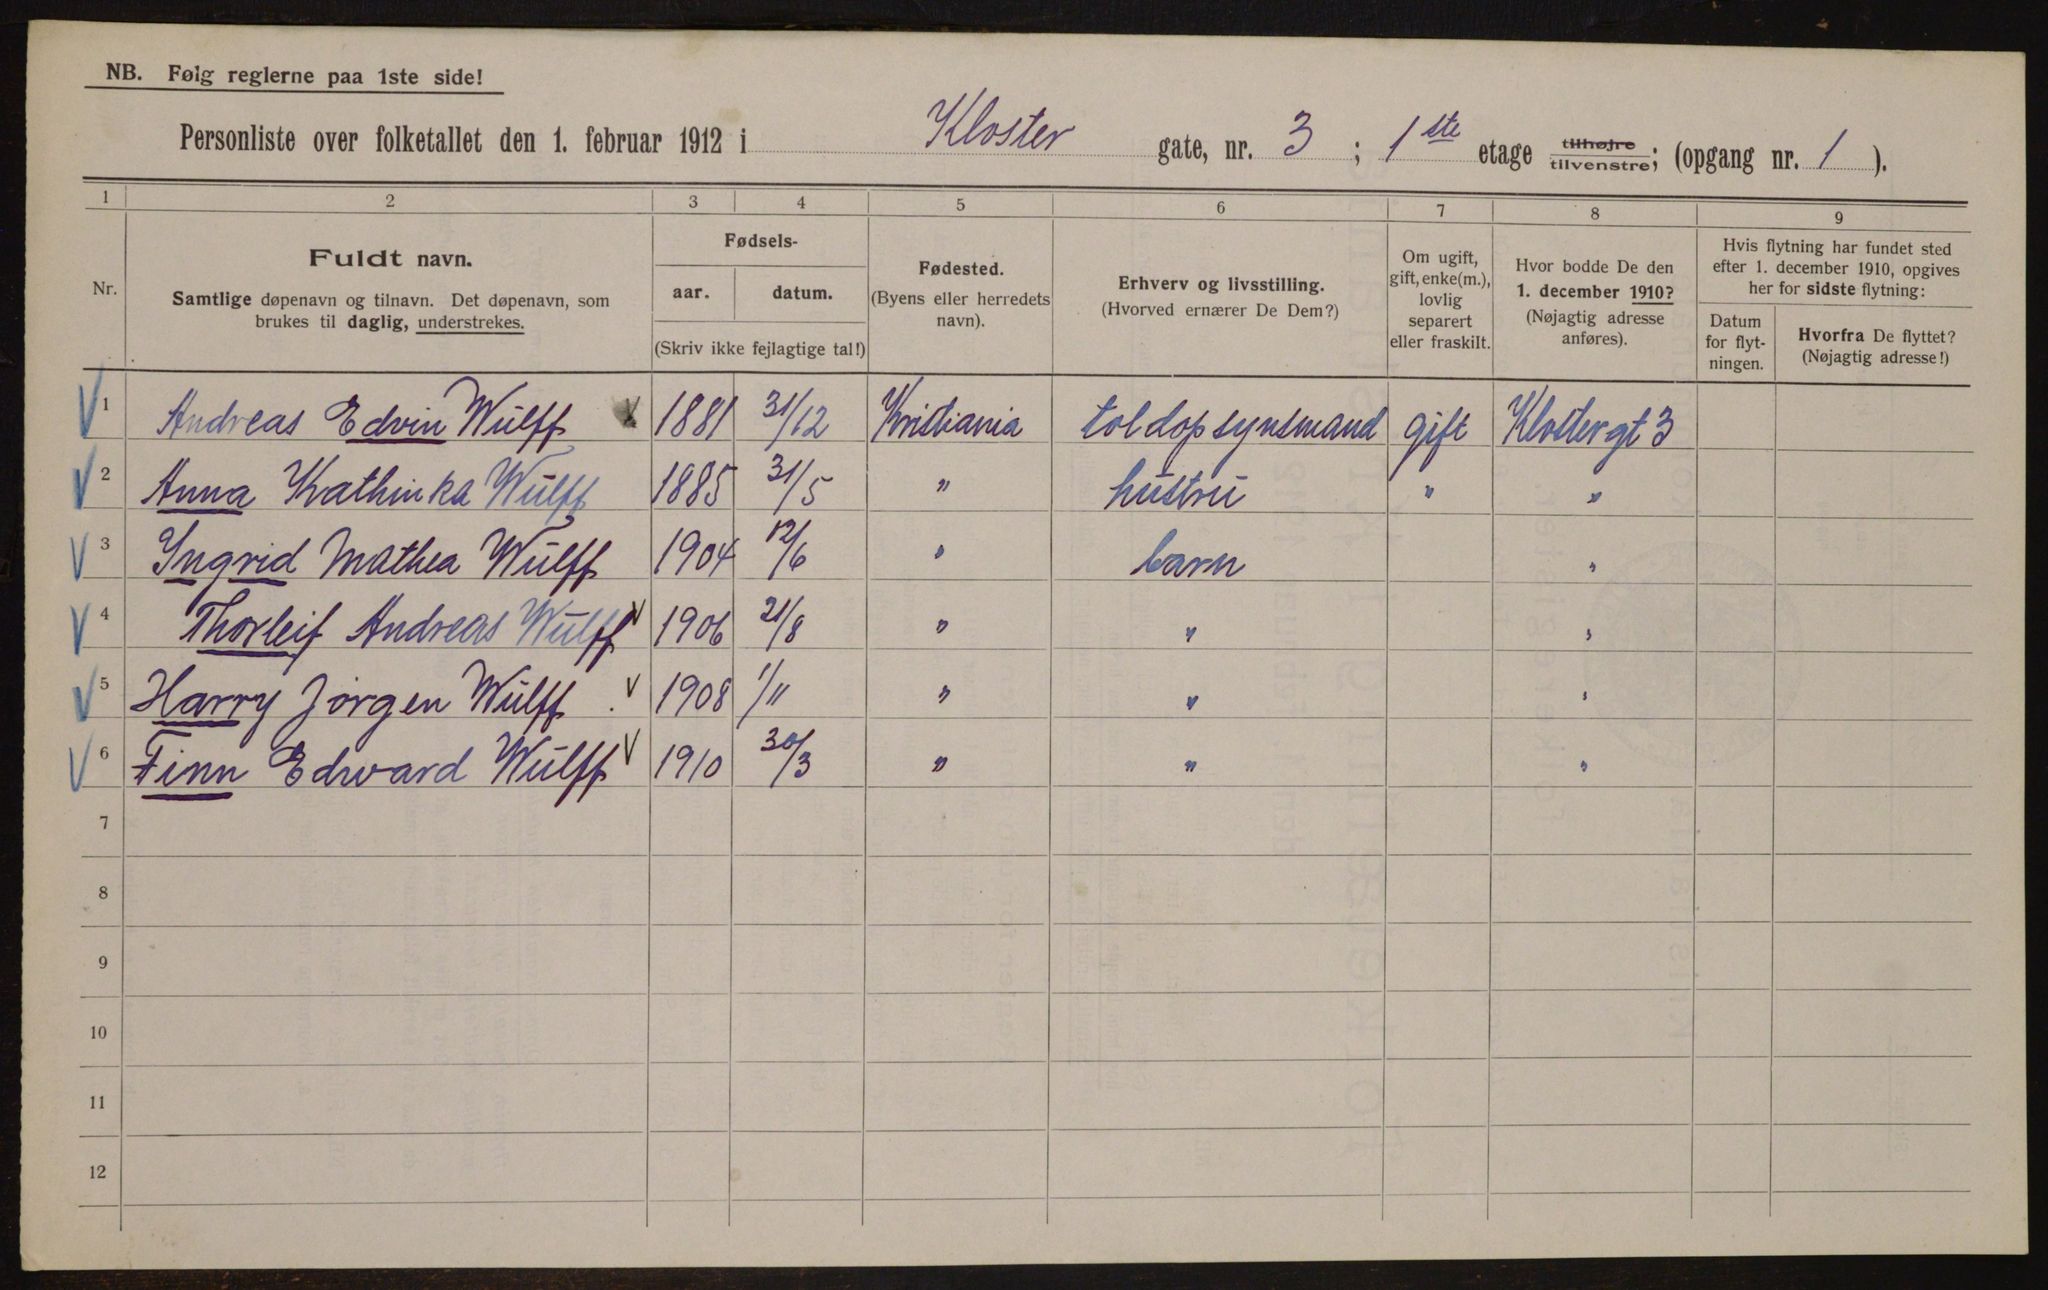 NB. Følg reglerne paa 1ste side!
Personliste over folketallet den 1. februar 1912 i Kloster gate, nr. 3 ; 1ste etage tilhøjre tilvenstre; (opgang nr. 1 ).
1 2 3 4 5 6 7 8 9
Nr.
Fuldt navn.
Samtlige døpenavn og tilnavn. Det døpenavn, som
brukes til daglig, understrekes.
Fødsels-
aar. datum.
(Skriv ikke fejlagtige tal!)
Fødested.
(Byens eller herredets
navn).
Erhverv og livsstilling.
(Hvorved ernærer De Dem?)
Om ugift,
gift, enke(m.),
lovlig
separert
eller fraskilt.
Hvor bodde De den
1. december 1910?
(Nøjagtig adresse
anføres).
Hvis flytning har fundet sted
efter 1. december 1910, opgives
her for sidste flytning:
Datum
for flyt-
ningen.
Hvorfra De flyttet?
(Nøjagtig adresse!)
1 Andreas Edvin Wulff 1881 31/12 Kristiania toldopsynsmand gift Klostergt 3
2 Anna Kathinka Wulff 1885 31/5 " hustru " "
3 Yngrid Mathea Wulff 1904 12/6 " barn "
4 Thorleif Andreas Wulff 1906 21/8 " " "
5 Harry Jørgen Wulff 1908 1/11 " " "
6 Finn Edward Wulff 1910 30/3 " " "
7
8
9
10
11
12